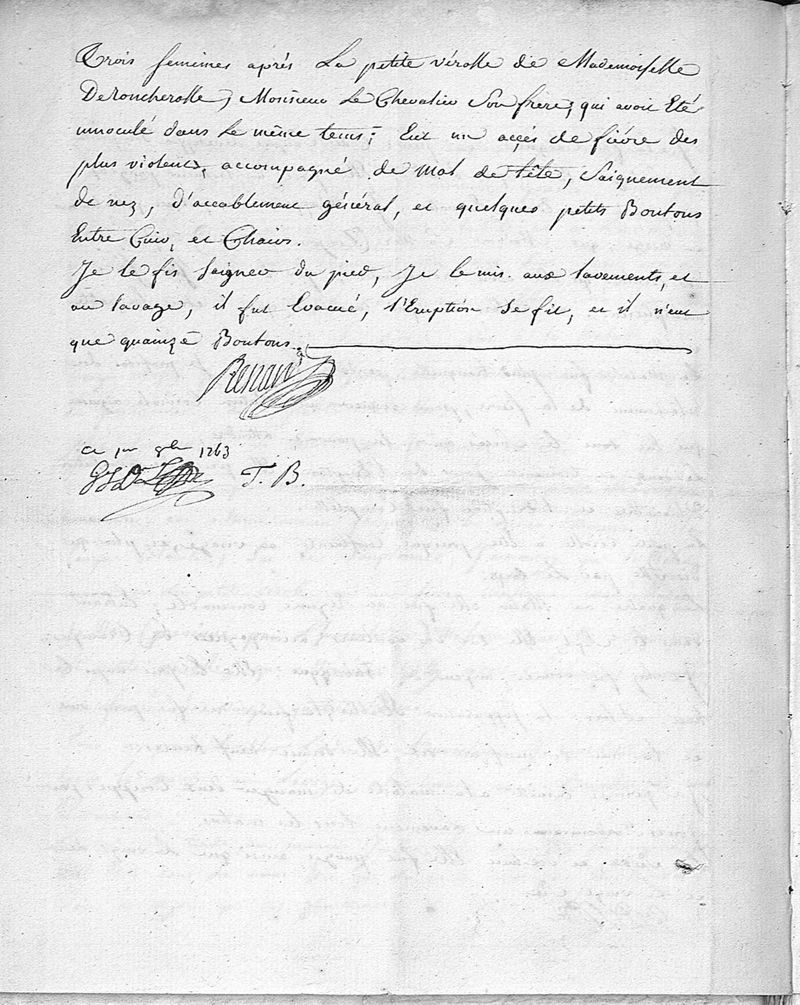 Trois semeines aprés La petite vérolle de Mademoiselle
Deroncherolle, Monsieur Le Chevalier Son frere, qui avoit Eté
innoculé dans Le même tems, Eut un accés de fiévre des
plus violents, accompagné de Mal de tête, Saignement
de nez, d'accablement général, et quelques petits Boutons
Entre Cuir, et Chairs.
Je le fis Saigner du pied, Je le mis aux lavements, et
au lavage, il fut Evacué, l'Eruption Se fit, et il n'eut
que quainze Boutons.
Renard
ce 1er 8bre 1763
T. B.